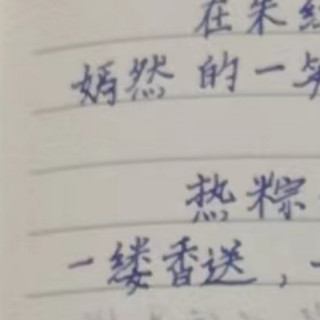 在朱
嫣然的一
热粽
一缕香送，